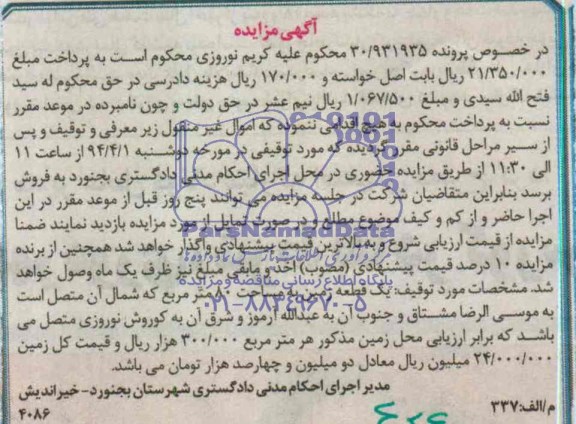 آگهی مزایده
در خصوص پرونده ۳۰/۹۳۱۹۳۵ محکوم علیه کریم نوروزی محکوم است به پرداخت مبلغ
۲۱/۳۵۰/۰۰۰ ریال بابت اصل خواسته و ۱۷۰/۰۰۰ ریال هزینه دادرسی در حق محکوم له سید
فتح الله سیدی و مبلغ ۱/۰۶۷/۵۰۰ ریال نیم عشر در حق دولت و چون نامبرده در موعد مقرر
نسبت به پرداخت محکوم به هیچ اقدامی ننموده که اموال غیر منقول زیر معرفی و توقیف و پس
از سیر مراحل قانونی مقرر گردیده که مورد توقیفی در مورخه دوشنبه ۹۴/۴/۱ از ساعت ۱۱
الی ۱۱:۳۰ از طریق مزایده حضوری در محل اجرای احکام مدنی دادگستری بجنورد به فروش
برسد بنابراین متقاضیان شرکت در جلسه مزایده می توانند پنج روز قبل از موعد مقرر در این
اجرا حاضر و از کم و کیف موضوع مطلع و در صورت تمایل از مورد مزایده بازدید نمایند ضمنا
مزایده از قیمت ارزیابی شروع و به بالاترین قیمت پیشنهادی واگذار خواهد شد همچنین از برنده
مزایده ۱۰ درصد قیمت پیشنهادی (مصوب) اخذ و مابقی مبلغ نیز ظرف یک ماه وصول خواهد
شد. مشخصات مورد توقیف: یک قطعه زمین متر مربع که شمال آن متصل است
به موسی الرضا مشتاق و جنوب آن به عبدالله آرموز و شرق آن به کوروش نوروزی متصل می
باشد که برابر ارزیابی محل زمین مذکور هر متر مربع ۳۰۰/۰۰۰ هزار ریال و قیمت کل زمین
۲۴/۰۰۰/۰۰۰ میلیون ریال معادل دو میلیون و چهارصد هزار تومان می باشد.
مدیر اجرای احکام مدنی دادگستری شهرستان بجنورد- خیراندیش
م/الف:۳۳۷
۴۰۸۶
ParsNamadData
پایگاه اطلاع رسانی مناقصه و مزایده
۰۲۱-۸۸۳۴۹۶۷۰-۵